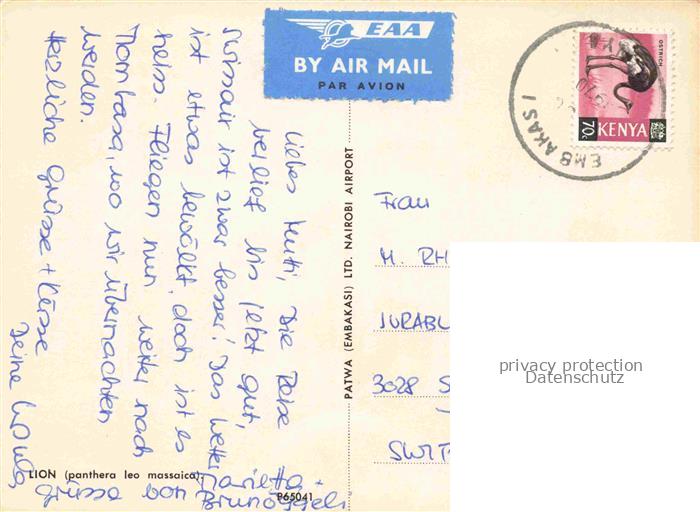 EAA
BY AIR MAIL
PAR AVION
OSTRICH
70c
KENYA
EMBAKASI
Liebes Mutti, Die Reise
verlief bis jetzt gut,
Swissair ist zwar besser! Das Wetter
ist etwas bewölkt, doch ist es
heiss. Fliegen nun weiter nach
Mombasa, wo wir übernachten
werden.
Herzliche Grüsse + Küsse
Deine
Grüsse von
PATWA (EMBAKASI) LTD. NAIROBI AIRPORT
Frau
M. RH
JURABL
3028 S
SWIT
privacy protection
Datenschutz
LION (panthera leo massaica).
P65041